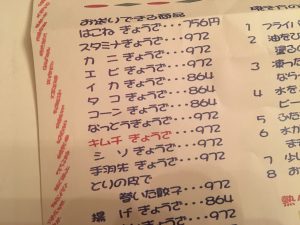 お送りできる商品
はこね ぎょうざ・・・756円
スタミナぎょうざ・・・972
カニ ぎょうざ・・・972
エビ ぎょうざ・・・972
イカ ぎょうざ・・・864
タコ ぎょうざ・・・864
コーン ぎょうざ・・・864
なっとうぎょうざ・・・972
キムチ ぎょうざ・・・972
シソ ぎょうざ・・・972
手羽先 ぎょうざ・・・972
とりの皮で
巻いた餃子・・・972
揚げ ぎょうざ・・・864
ぎょうざ・・・972
1 フライパ
2 油をひ
3
4 水を
5 ふた
6
7
8 お